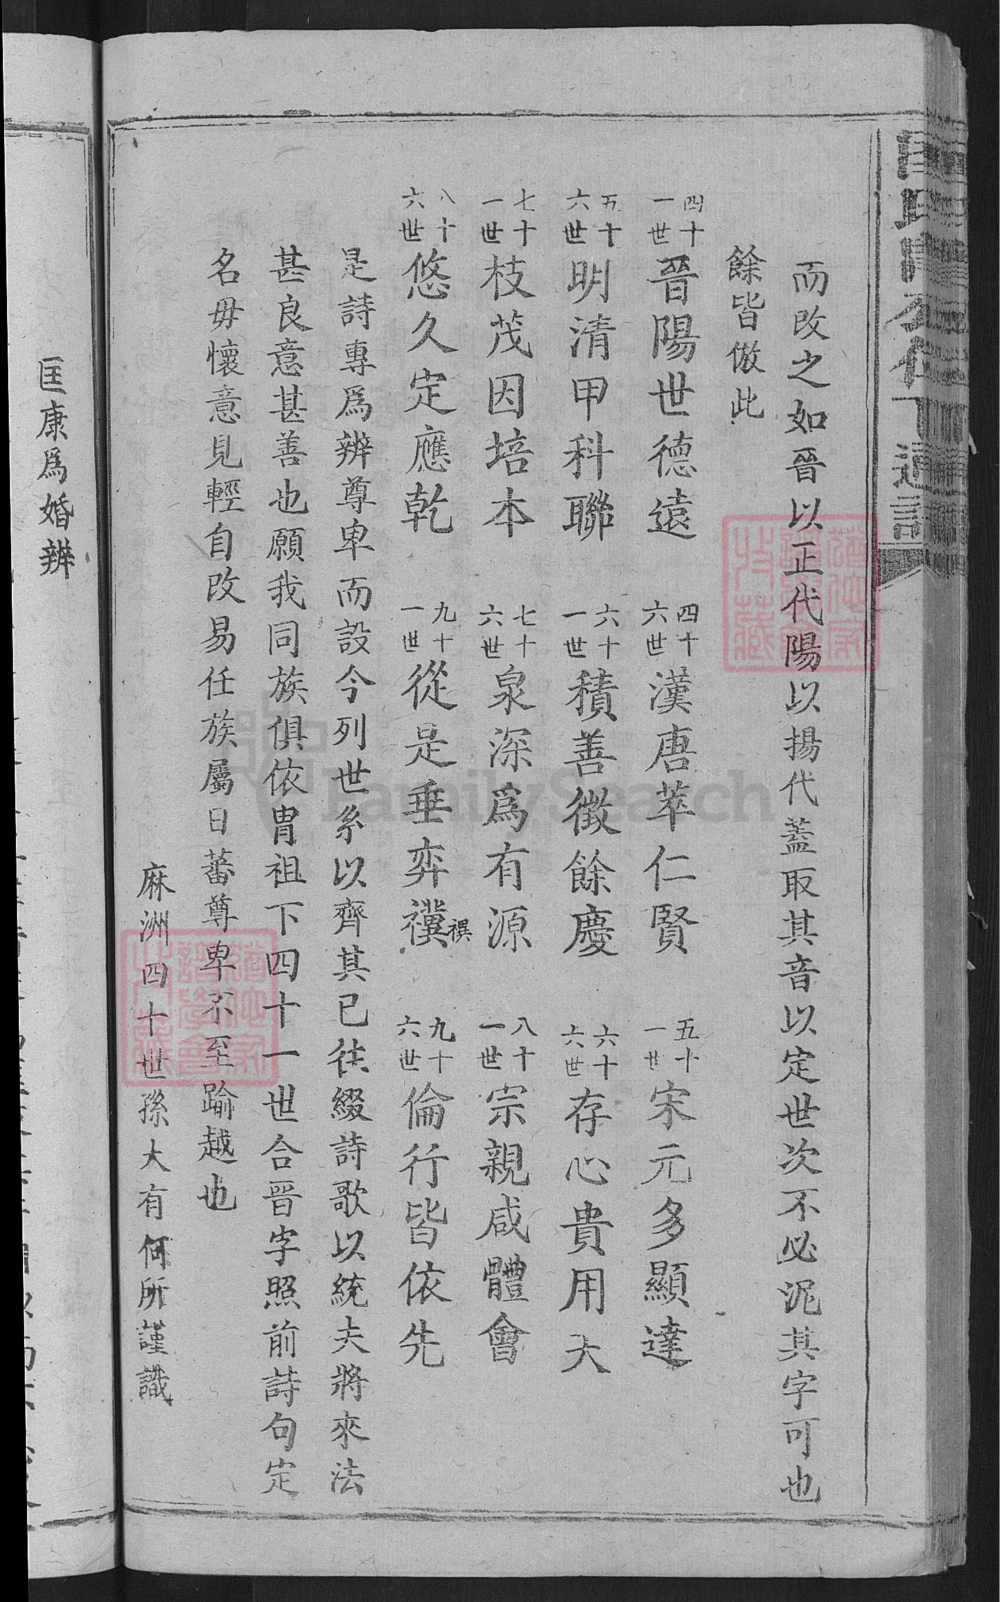 而改之如晉以正代陽以揚代蓋取其音以定世次不必泥其字可也
餘皆倣此
四十一世 晉陽世德遠 四十六世 漢唐萃仁賢 五十一世 宋元多顯達
五十六世 明清甲科聯 六十一世 積善徵餘慶 六十六世 存心貴用大
七十一世 枝茂因培本 七十六世 泉深爲有源 八十一世 宗親咸體會
八十六世 悠久定應乾 九十一世 從是垂弈禩 禩 九十六世 倫行皆依先
是詩專爲辨尊卑而設今列世系以齊其已往綴詩歌以統夫將來法
甚良意甚善也願我同族俱依胄祖下四十一世合晉字照前詩句定
名毋懷意見輕自改易任族屬日蕃尊卑不至踰越也
麻洲四十世孫大有何所謹識
匡康爲婚辨
FamilySearch